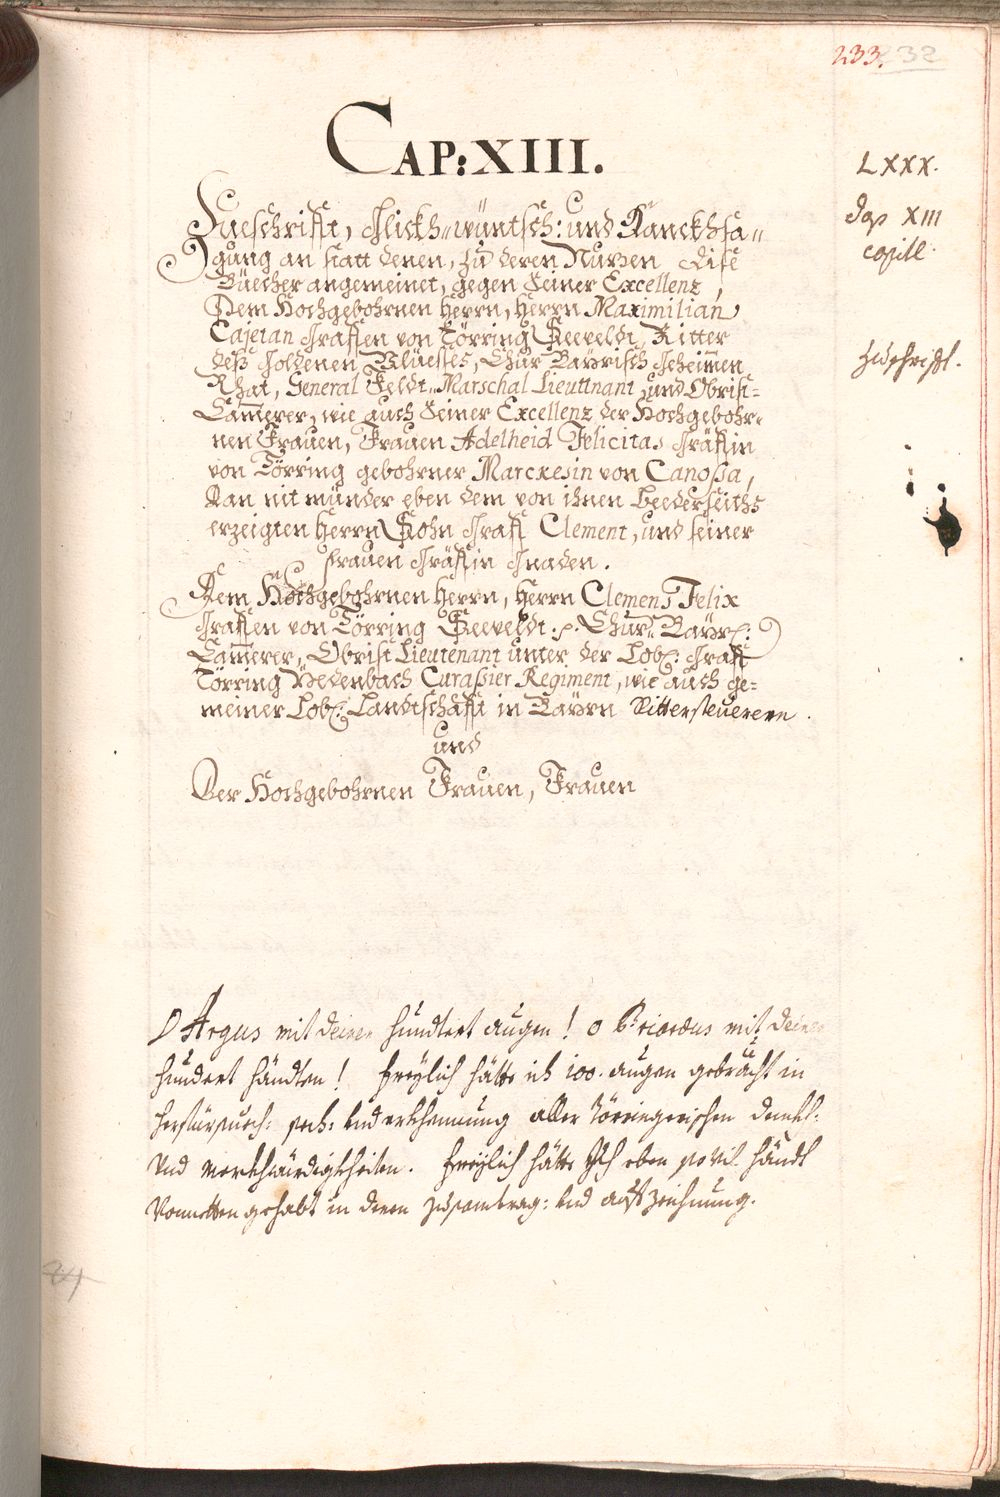 233. 232
CAP: XIII.
LXXX.
das XIII
capitl.
Zueschrifft, Glickh- wüntsch: und Danckhsa„
gung an statt denen, zu deren Nutzen dise
Büecher angemeinet, gegen Seiner Excellenz,
Dem Hochgebohrnen Herrn, Herrn Maximilian
Cajetan Graffen von Törring Seeveldt, Ritter
deß Goldenen Vlüesses, Chur Bayrisch Geheimen
Rhat, General Feldt„ Marschal Lieuttnant, und Obrist=
Camerer, wie auch Seiner Excellenz der Hochgebohr=
nen Frauen, Frauen Adelheid Felicitas Gräffin
von Törring gebohrner Marckesin von Canoßa,
Dan nit münder eben dem von ihnen beederseiths
erzeigten Herrn Sohn Graff Clement, und seiner
frauen Gräffin Gnaden.
Zueschrifft.
Dem Hochgebohrnen Herrn, Herrn Clemens Felix
Graffen von Törring Seeveldt. p. Chur„ Bayr:
Camerer, Obrist Lieutenant unter der Lobl: Graff
Törring Curaßier Regiment, wie auch ge=
meiner Lobl: Landtschafft in Bayrn Rittersteuerern.
und
Der Hochgebohrnen Frauen, Frauen
O Argus mit deinen hundtert augen! o Briaraeus mit deinen
hundert händten! freylich hätte ich 100. augen gebraucht in
und erkhennung aller Törringerischen denkh-
und merckwürdigkheiten. freylich hätte Ich eben so vil händt
Vonnetten gehabt in deren zusambtrag: und auffzeichnung.